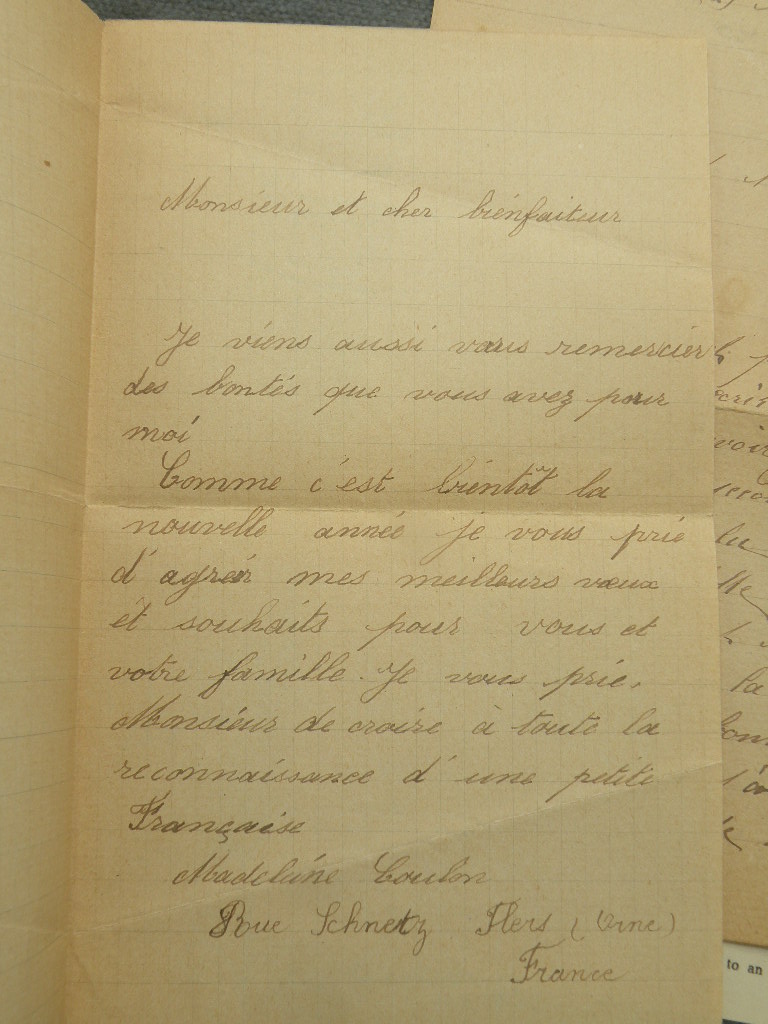 Monsieur et cher biénfaiteur
Je viéns aussi vous remercier
des bontés que vous avez pour
moi
Comme c'est biéntôt la
nouvelle année je vous prie
d'agréér mes meilleurs vœux
ét souhaits pour vous et
votre famille. Je vous prie,
Monsiéur de croire à toute la
reconnaissance d'une petite
Française
Madeleine Coulon
Rue Schnetz Flers (Orne)
France
to an